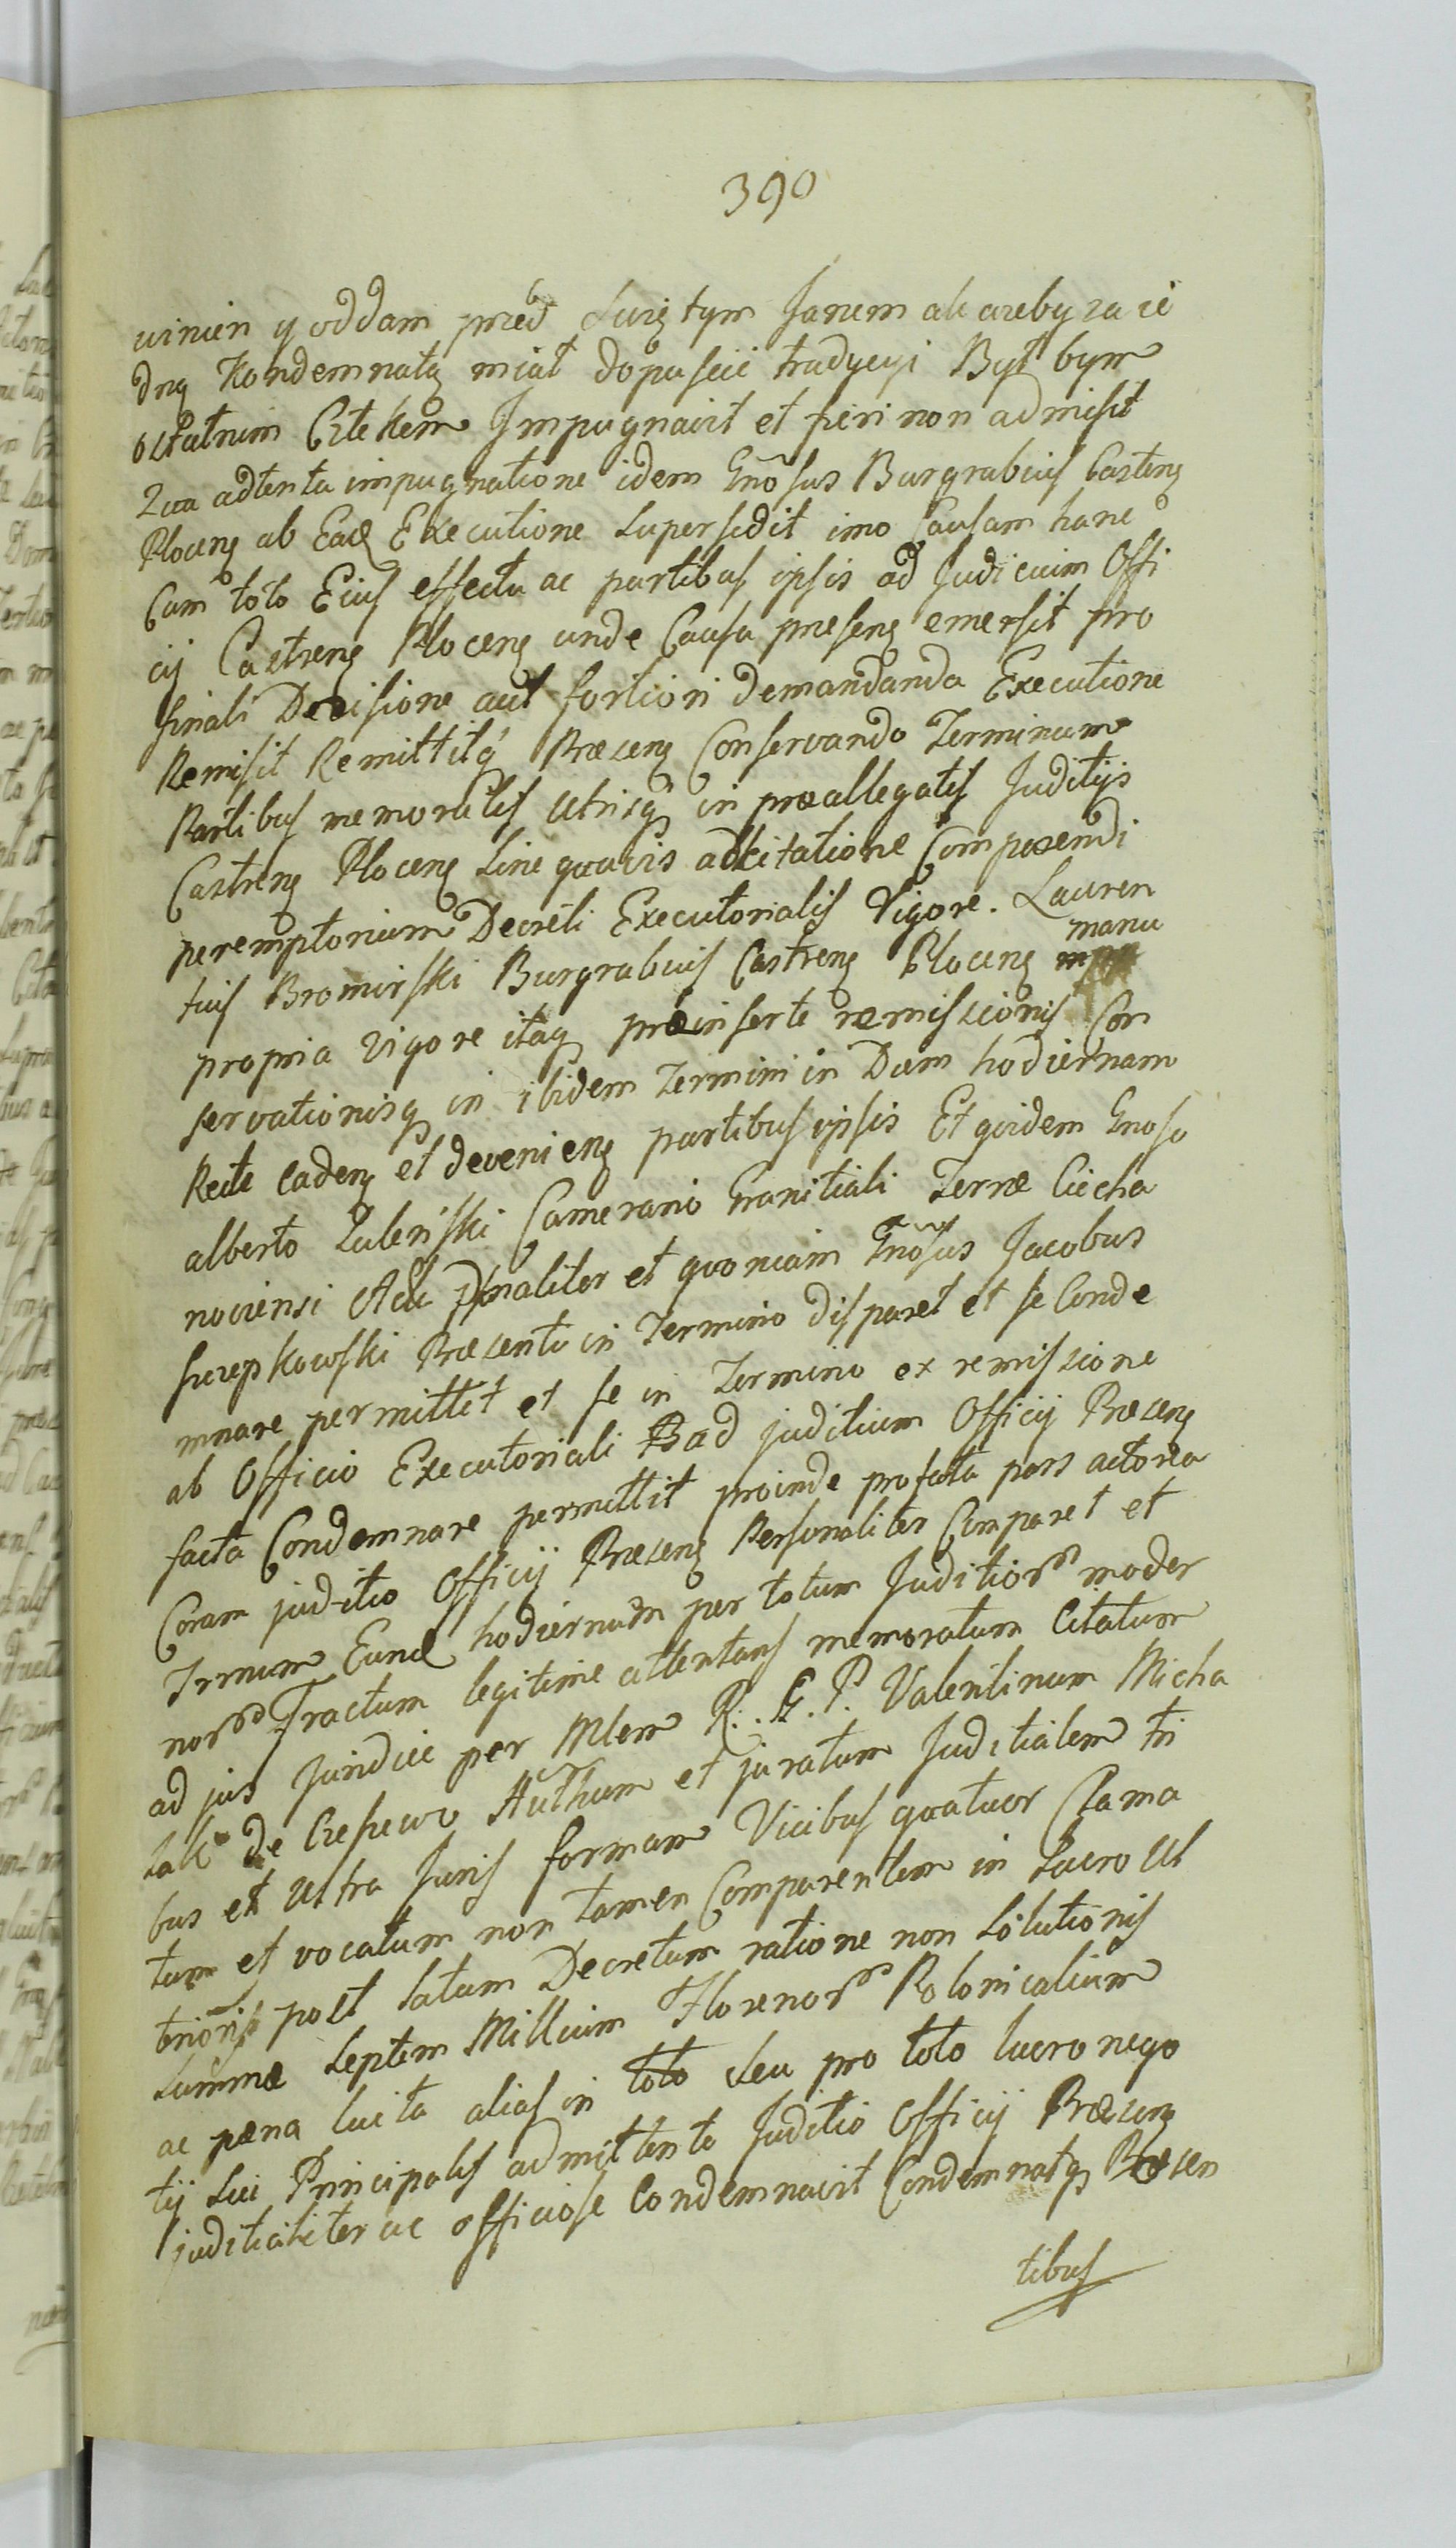 390
winien y oddam przed Swiętym Janem ale ażeby za ie
dną Kondemnatą miał dopuscić tradycyi Był bym
ostatnim Człekem Impugnavit et fieri non admisit
Qua adtenta impugnatione idem Gnosus Burgrabius Castren
Plocen ab Ead Executione supersedit imo Causam hanc
Cum toto Eius effectu ac partibus ipsis ad Judicium Offi
cij Castren Plocen unde Causa presens emersit pro
finali Decisione aut fortiori demandanda Executione
Remisit Remittitq Præsens Conservando Terminum
Partibus memoratis Utrisq in præallegatis Juditijs
Castren Plocen sine quavis adcitatione Comparendi
peremptorium Decreti Executorialis Vigore. Lauren
tius Bromirski Burgrabius Castren Plocen manu
propria vigore itaq præinserte remissionis Con
servationisq in ibidem Termini in Diem hodiernam
Recte caden et devenien partibus ipsis Et quidem Gnoso
alberto Zaleński Camerario Granitiali Terræ Ciecha
noviensi Actu psonaliter et quoniam Gnosus Jacobus
Szczepkowski Præsenti in Termino disparet et se Conde
mnare permittet et se in Termino ex remissione
ab Officio Executoriali ad juditium Officij Præsen
facta Condemnare permittit proinde profata pars actorea
Coram juditio Officij Præsen Personaliter Comparet et
Trnum Eund hodiernum per totum Juditior moder
nor Tractum legitime attentans memoratum Citatum
ad jus Juridice per Mlem R. G. P. Valentinum Micha
lak de Czesewo Authum et juratum Juditialem tri
bus et ultra Juris formam Vicibus quatuor Clama
tum et vocatum non tamen Comparentem in Lucro Ul
trioris post latum Decretum ratione non Solutionis
Summæ Septem Millium Florenor Polonicalium
ac pæna lucita alias in toto seu pro toto lucro nego
tij sui Principalis admittente Juditio Officij Præsen
juditialiter ac officiose Condemnavit Condemnatq Præsen
tibus